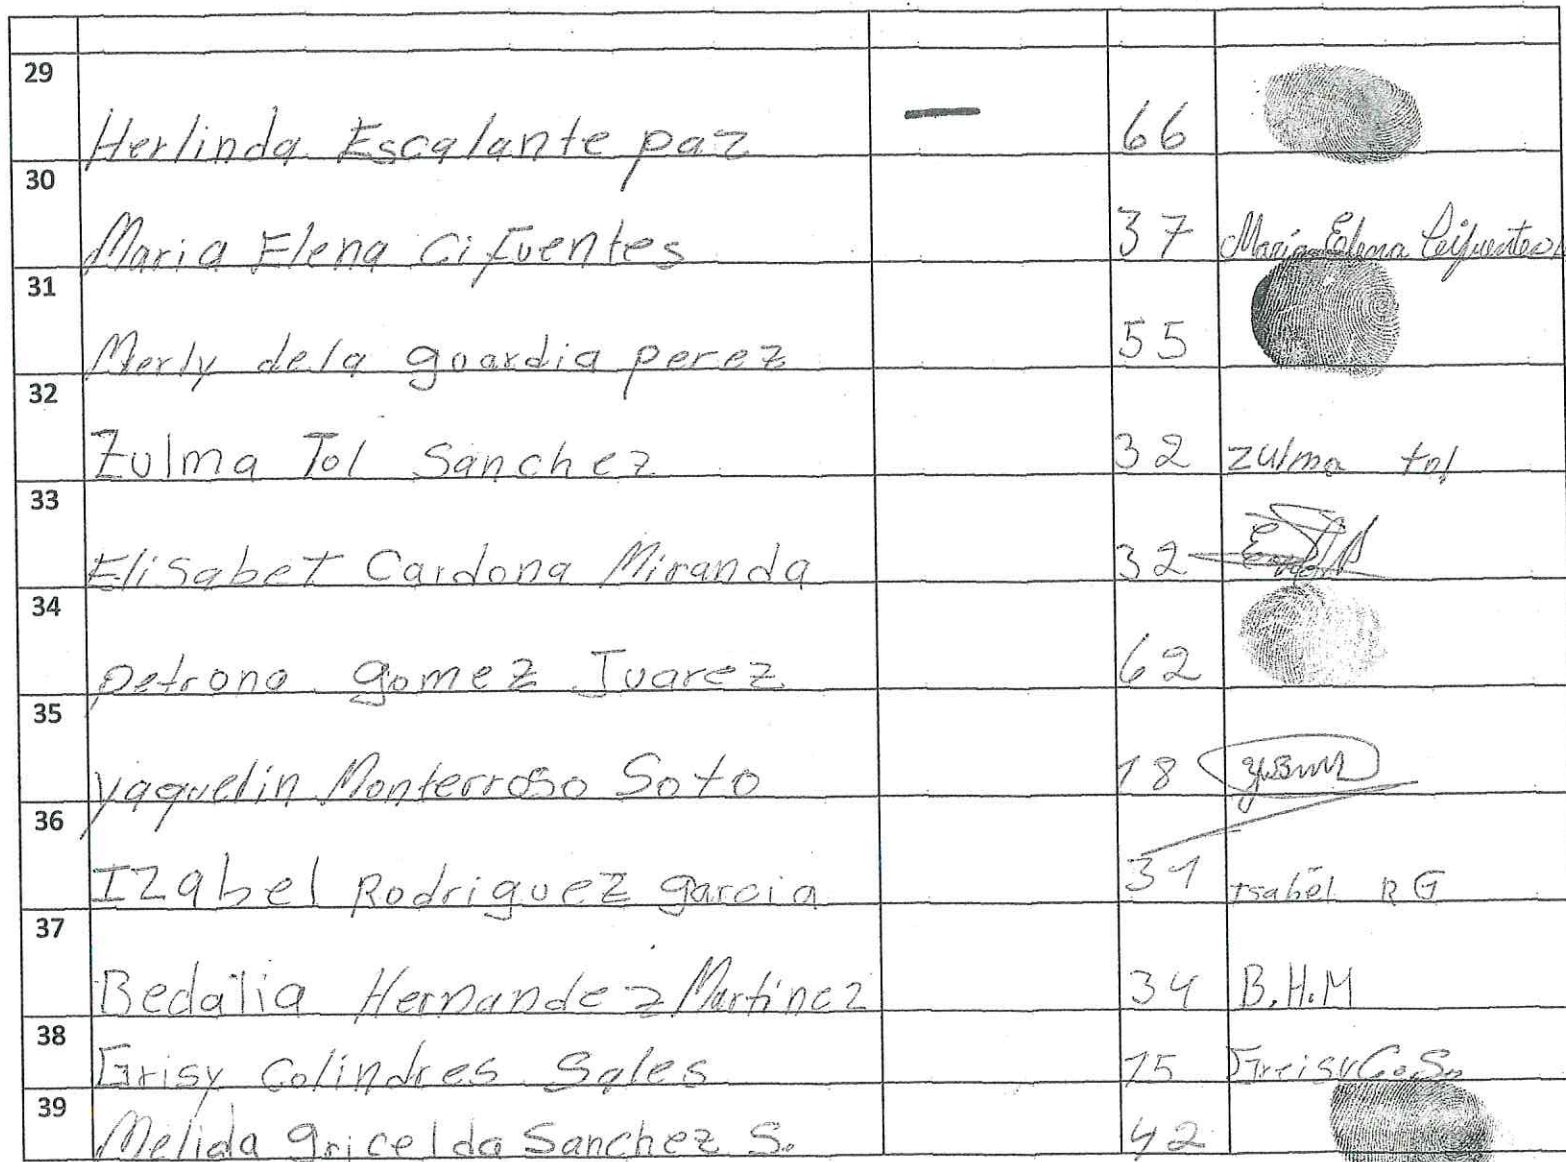 29
Herlinda Escalante paz — 66
30
Maria Elena Cifuentes 37 Maria Elena Cifuentes
31
Merly dela guardia perez 55
32
Zulma Tol Sanchez 32 zulma tol
33
Elisabet Cardona Miranda 32
34
petrona gomez Juarez 62
35
yaquelin Monterroso Soto 18
36
Izabel Rodriguez garcia 31 Isabel R G
37
Bedalia Hernandez Martinez 34 B.H.M
38
Grisy Colindres Sales 15 Greisy C.S.
39
Melida gricelda Sanchez S. 42